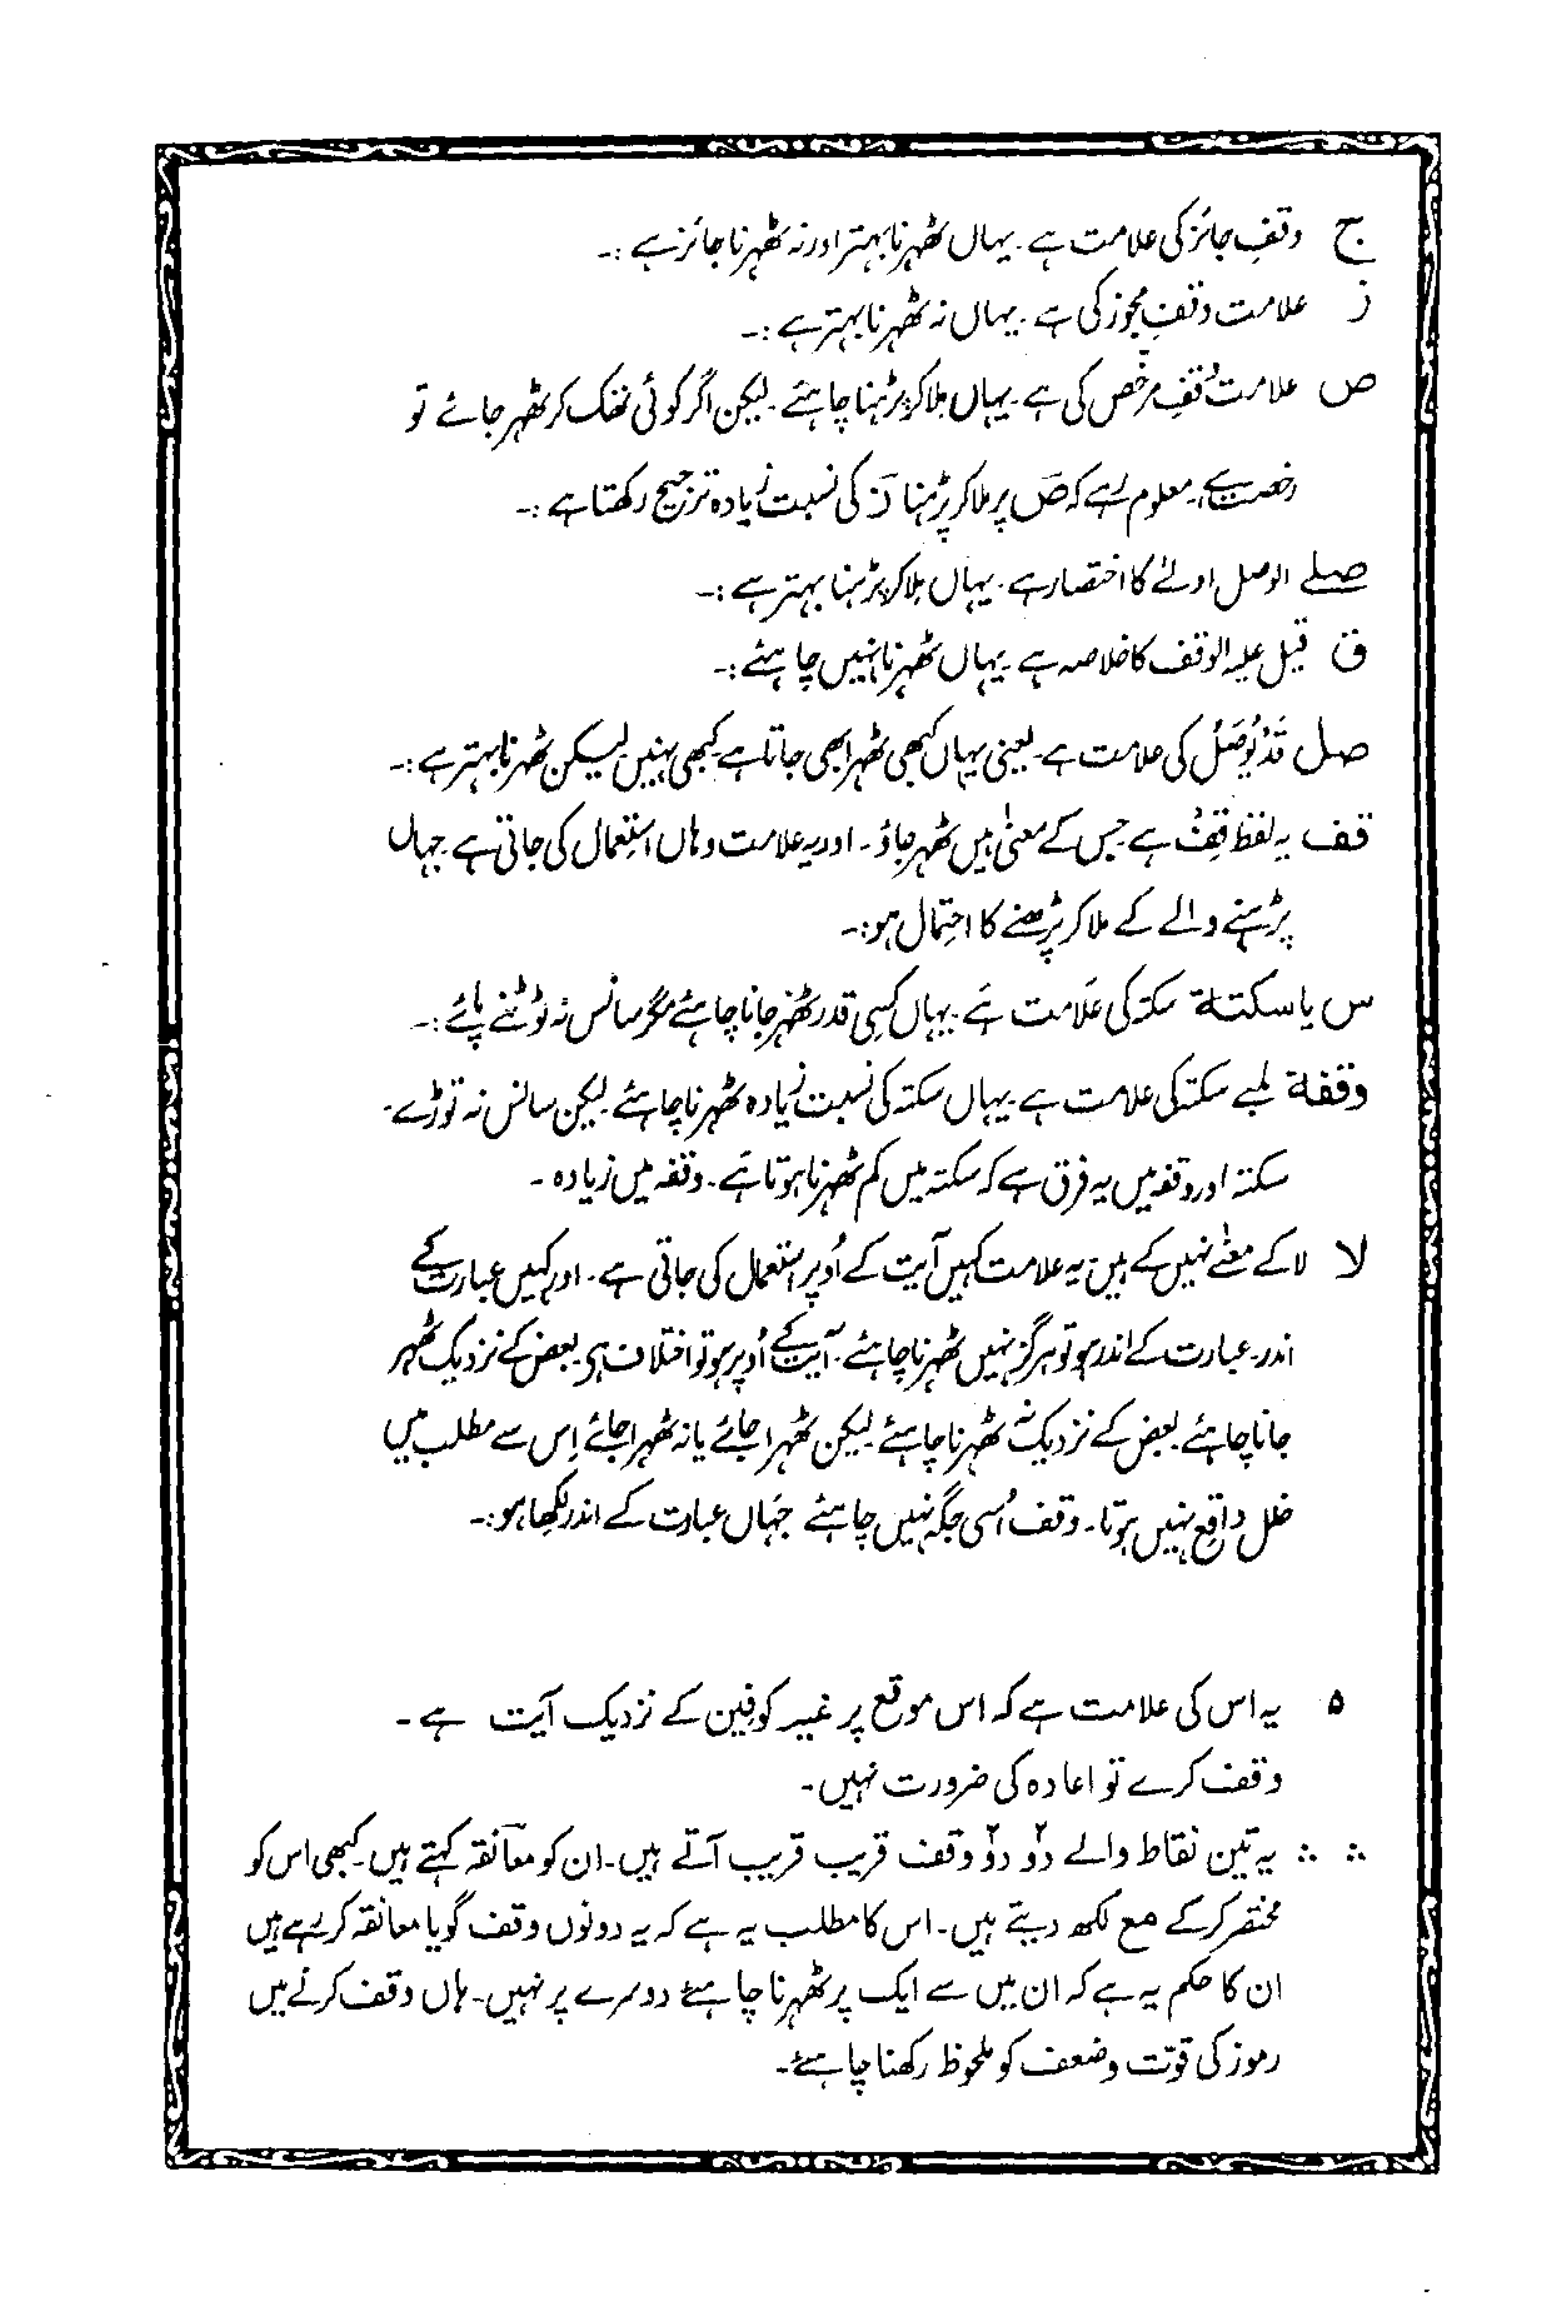 ج وقفِ جائز کی علامت ہے۔ یہاں ٹھہرنا بہتر اور نہ ٹھہرنا جائز ہے :۔
ز علامت وقفِ مجوز کی ہے۔ یہاں نہ ٹھہرنا بہتر ہے :۔
ص علامت وقفِ مرخّص کی ہے۔ یہاں ملا کر پڑہنا چاہئے۔ لیکن اگر کوئی تھک کر ٹھہر جائے تو
رخصت ہے۔ معلوم رہے کہ صَ پر ملا کر پڑہنا زَ کی نسبت زیادہ ترجیح رکھتا ہے :۔
صلے الوصل اولےٰ کا اختصار ہے۔ یہاں ملا کر پڑہنا بہتر ہے :۔
ق قیل علیہ الوقف کا خلاصہ ہے۔ یہاں ٹھہرنا نہیں چاہئے :۔
صل قَدْ یُوصَلُ کی علامت ہے۔ یعنی یہاں کبھی ٹھہرا بھی جاتا ہے کبھی نہیں لیکن ٹھہرنا بہتر ہے :۔
قف یہ لفظ قِفْ ہے جس کے معنیٰ ہیں ٹھہر جاؤ۔ اور یہ علامت وہاں استِعمال کی جاتی ہے۔ جہاں
پڑہنے والے کے ملا کر پڑھنے کا احتِمال ہو :۔
س یا سکتة سکتہ کی عَلامت ہَے۔ یہاں کسِی قدر ٹھہر جانا چاہئے مگر سانس نہ ٹوٹنے پائے :۔
وقفة لمبے سکتہ کی علامت ہے۔ یہاں سکتہ کی نسبت زیادہ ٹھہرنا چاہئے۔ لیکن سانس نہ توڑے۔
سکتہ اور وقفہ میں یہ فرق ہے کہ سکتہ میں کم ٹھہرنا ہوتا ہَے۔ وقفہ میں زیادہ ۔
لا لا کے معنےٰ نہیں کے ہیں۔ یہ علامت کہیں آیت کے اُوپر استعمال کی جاتی ہے۔ اور کہیں عبارت کے
اندر۔ عبارت کے اندر ہو تو ہرگز نہیں ٹھہرنا چاہئے۔ آیت کے اُوپر ہو تو اختلاف ہی۔ بعض کے نزدیک ٹھہر
جانا چاہئے۔ بعض کے نزدیک نہ ٹھہرنا چاہئے لیکن ٹھہرا جائے یا نہ ٹھہرا جائے اِس سے مطلب میں
خلل واقع نہیں ہوتا۔ وقف اُسی جگہ نہیں چاہئے جہاں عبارت کے اندر لکھا ہو :۔
۵ یہ اس کی علامت ہے کہ اس موقع پر غیر کوفِیین کے نزدیک آیت ہے ۔
وقف کرے تو اعادہ کی ضرورت نہیں۔
∴ ∴ یہ تین نقاط والے دو۲ دو۲ وقف قریب قریب آتے ہیں۔ ان کو معانقہ کہتے ہیں۔ کبھی اس کو
مختصر کرکے مع لکھ دیتے ہیں۔ اس کا مطلب یہ ہے کہ یہ دونوں وقف گویا معانقہ کر رہے ہیں
ان کا حکم یہ ہے کہ ان میں سے ایک پر ٹھہرنا چاہئے دوسرے پر نہیں۔ ہاں وقف کرنے میں
رموز کی قوّت و ضعف کو ملحوظ رکھنا چاہئے۔